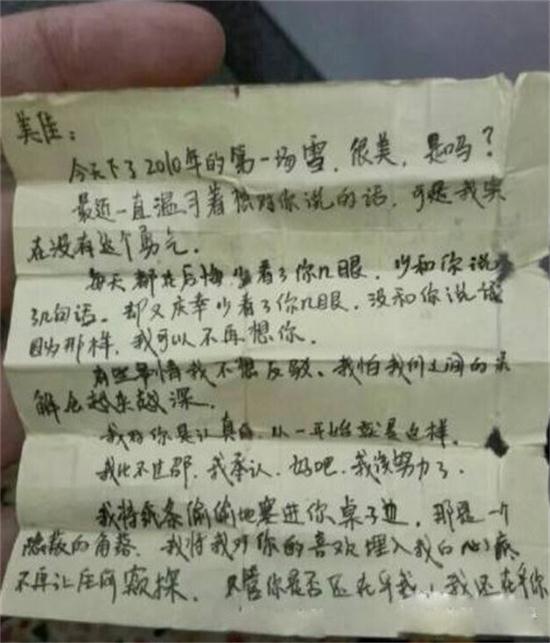 美佳：
今天下了2010年的第一场雪，很美，是吗？
最近一直温习着想对你说的话，可是我实
在没有这个勇气。
每天都在后悔少看了你几眼，少和你说
了几句话。却又庆幸少看了你几眼，没和你说话
因为那样，我可以不再想你。
有些事情我不想反驳、我怕我们之间的误
解会越来越深。
我对你是认真的，从一开始就是这样。
我比不过邵，我承认，好吧，我该努力了。
我将纸条偷偷地塞进你桌子边，那是一个
隐蔽的角落，我将我对你的喜欢埋入我的心底
不再让任何窥探。不管你是否还在乎我，我还在乎你